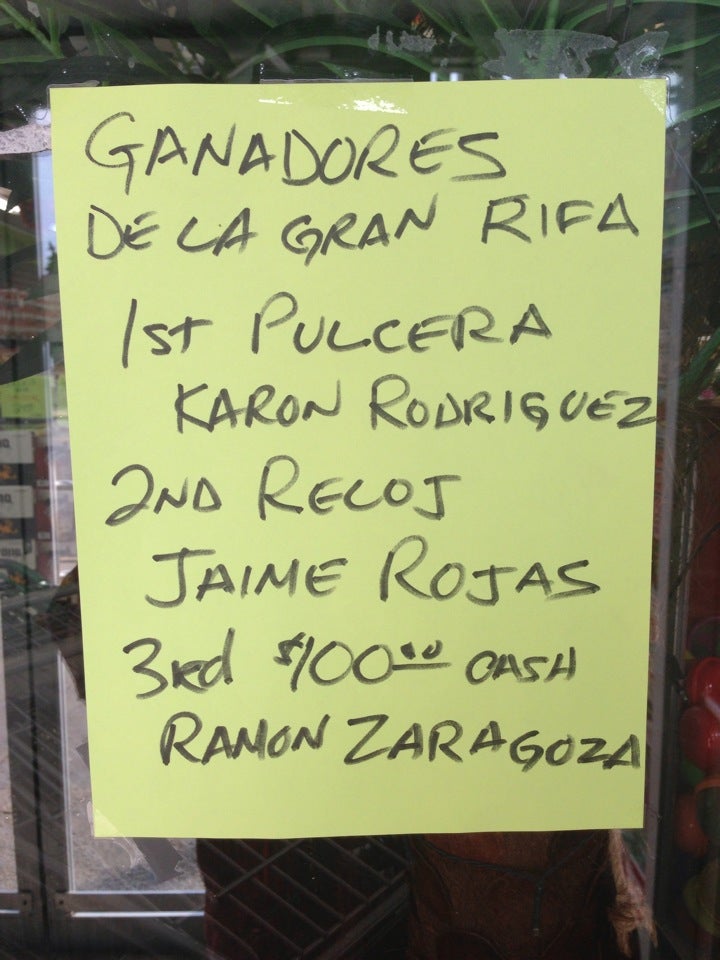 GANADORES
DE LA GRAN RIFA
1ST PULCERA
KARON RODRIGUEZ
2ND RELOJ
JAIME ROJAS
3Rd $100.00 CASH
RAMON ZARAGOZA